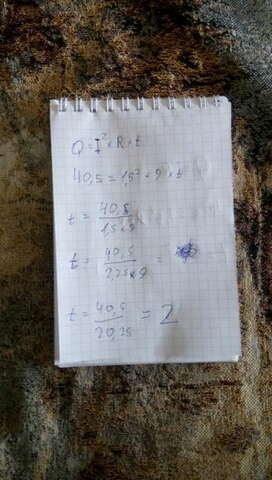 Q = I² × R × t
40,5 = 1,5² × 9 × t
t = 40,5 / 1,5 × 9
t = 40,5 / 2,25 × 9 =
t = 40,5 / 20,25 = 2